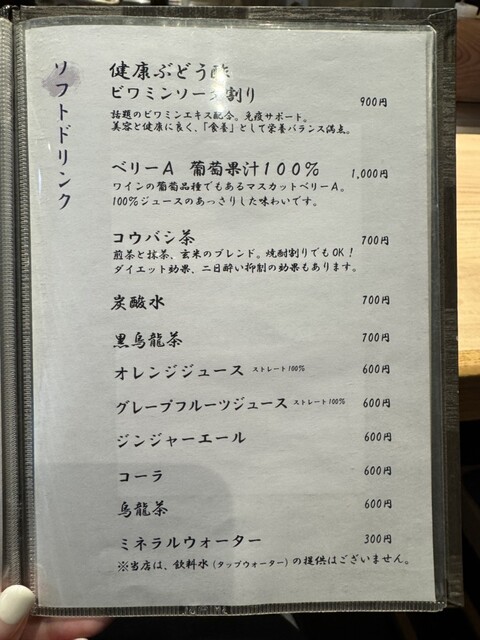 ソフトドリンク
健康ぶどう酢
ビワミンソーダ割り 900円
話題のビワミンエキス配合。免疫サポート。
美容と健康に良く、「食養」として栄養バランス満点。
ベリーA 葡萄果汁100% 1,000円
ワインの葡萄品種でもあるマスカットベリーA。
100%ジュースのあっさりした味わいです。
コウバシ茶 700円
煎茶と抹茶、玄米のブレンド。焼酎割りでもOK！
ダイエット効果、二日酔い抑制の効果もあります。
炭酸水 700円
黒烏龍茶 700円
オレンジジュース ストレート100% 600円
グレープフルーツジュース ストレート100% 600円
ジンジャーエール 600円
コーラ 600円
烏龍茶 600円
ミネラルウォーター 300円
※当店は、飲料水(タップウォーター)の提供はございません。